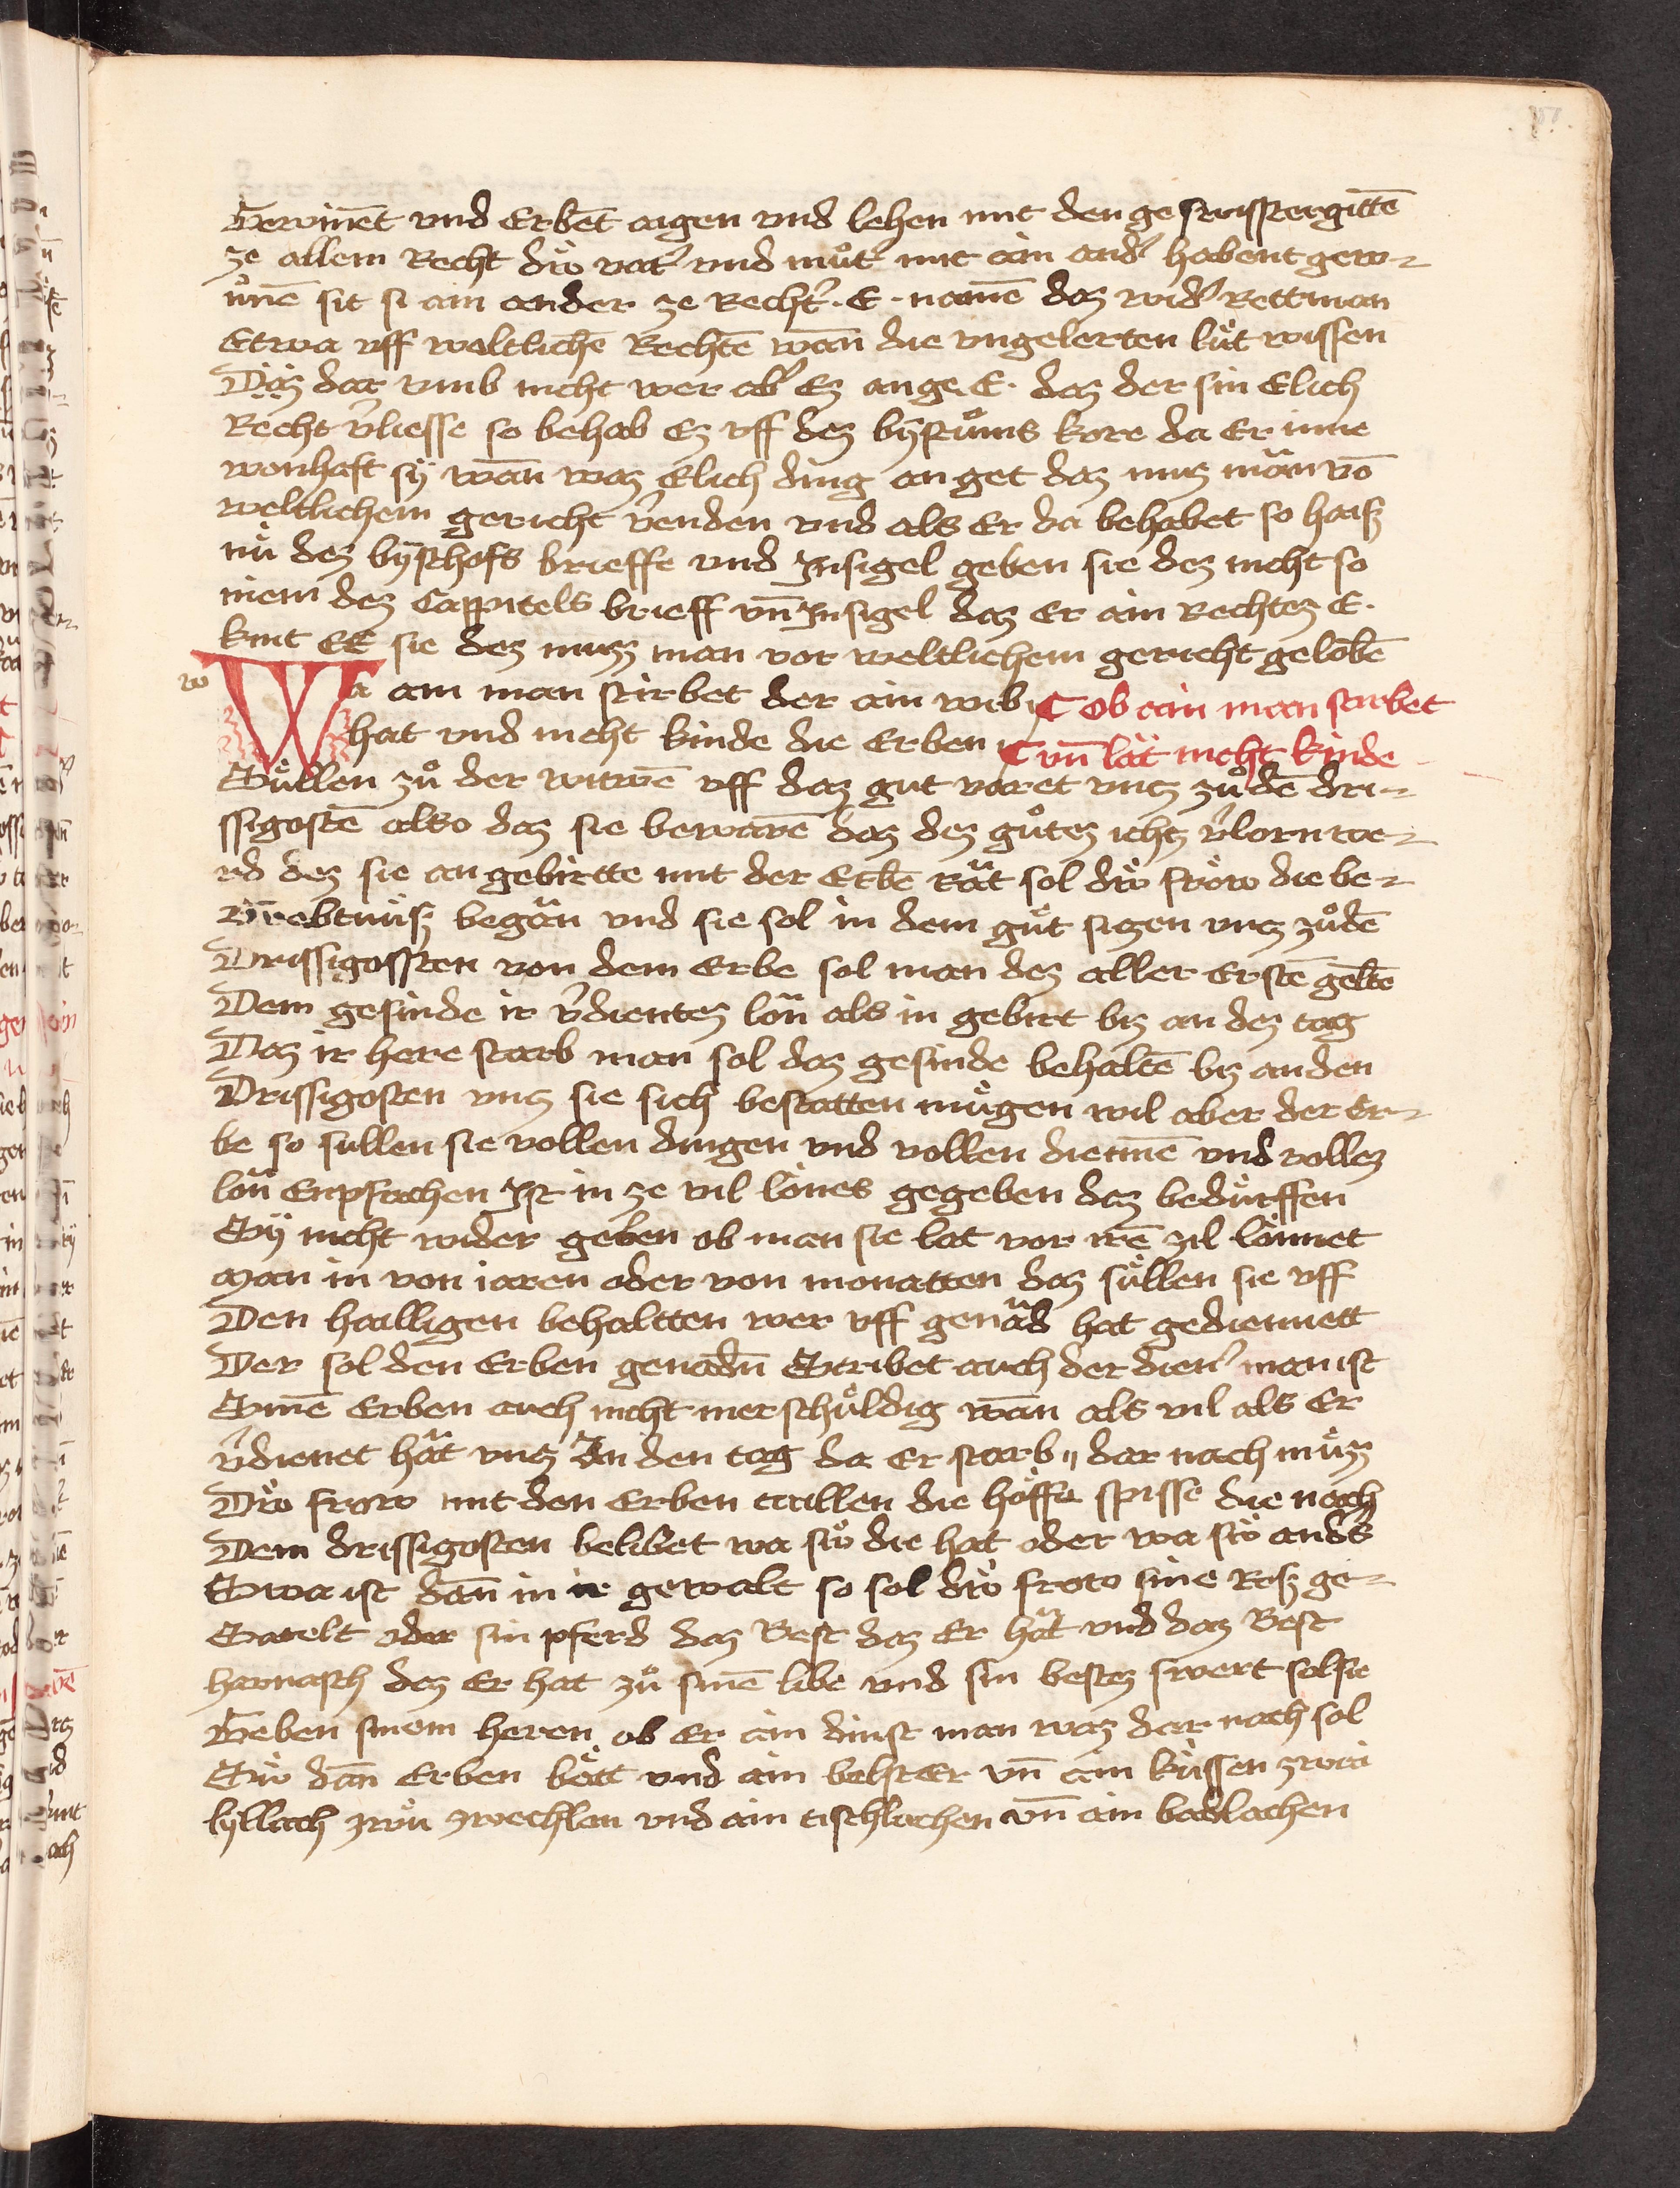 Gewinēt vnd Erbēt aigen vnd lehen mit den geswisstergittē
ze allem Recht dıͤw vatʼ vnd muͦtʼ mit ain andʼ habent gew-
uͦnē sit si ain ander ze Rechtʼ · E · namē daz widʼ Rettman
Etwa vff weltlichē Rechtē wān die vngelerten luͤt wissen
Daz dar vmb nicht wer abʼ Ez ange · E · daz der sin Elich
Recht vʼliesse so behab Ez vff dez bÿstuͦms kore da Er inne
wonhaft sÿ wān waz Elich ding an get daz muz män vō
weltlichem gericht vʼenden vnd als Er da behabet so haisz
nuͤ dez bÿschofs brieffe vnd Insigel geben sie dez nicht so
niem dez Cappitels brieff vn̄ Insigel daz Er ain Rechtez E ·
kint EE sie dez muzz man vor weltlichem gericht gelōbē
w
Wa ain man stirbet der ain wib
¶ ob ain man starbet
hat vnd nicht kinde die Erben
¶ vn̄ lät nicht kinde
Suͤllen zuͦ der witwē vff daz gut varet vntz zuͦ dē dri-
ssigostē also daz sie bewarē daz dez guͦtez ichtz vʼlorn we-
rd dez sie an gebirtte mit der Erbē Rät sol dıͤw froͤw die be-
Grebtnuͤsz begän vnd sie sol in dem guͤt sizen vntz zuͦ dē
Drissigossten von dem Erbe sol man dez aller Erstē geltē
Dem gesinde ir vʼdientez lön als in gebirt biz an dez tag
Daz ir here starb man sol daz gesinde behaltē biz an den
Drissigosten vntz sie sich bestatten muͤgen wil aber der Er-
be so sullen sie vollen dingen vnd vollen dienē vnd vollez
lön Enpfachen Ist in ze vil lönes gegeben daz beduͤrffen
Sÿ nicht wider geben ob man sie lat vor irē zil lönnet
Man in von iaren oder von monatten daz suͤllen sie vff
Den hailligen behaltten wer vff genäd hat gediennett
Der sol den Erben genadn̄ Stribet auch der dienʼ man ist
Sinē Erben auch nicht mer schuͤldig wān als vil als Er
vʼdienet hät vntz An den tag da Er starb „ dar nach muͤzz
Dıͤw frow mit den Erben taillen die höffn spisse die nach
Dem drissigosten belibet wa sıͤw die hat oder wa sıͤw andʼs
Swa ist dān in ir gewalt so sol dıͤw frow sine Rosz ge-
Satelt oder sin pferd daz Best daz Er hät vnd daz Best
harnasch dez Er hat zuͦ sinē libe vnd sin bestez swert sol sie
Geben sinem heren ob Er ain dinst man waz dar nach sol
Sıͤw dān Erben bött vnd ain bolster vn̄ ain kuͤssen zwai
lÿllach zwuͤ zwechlen vnd ain tischlachen vn̄ ain badlachen